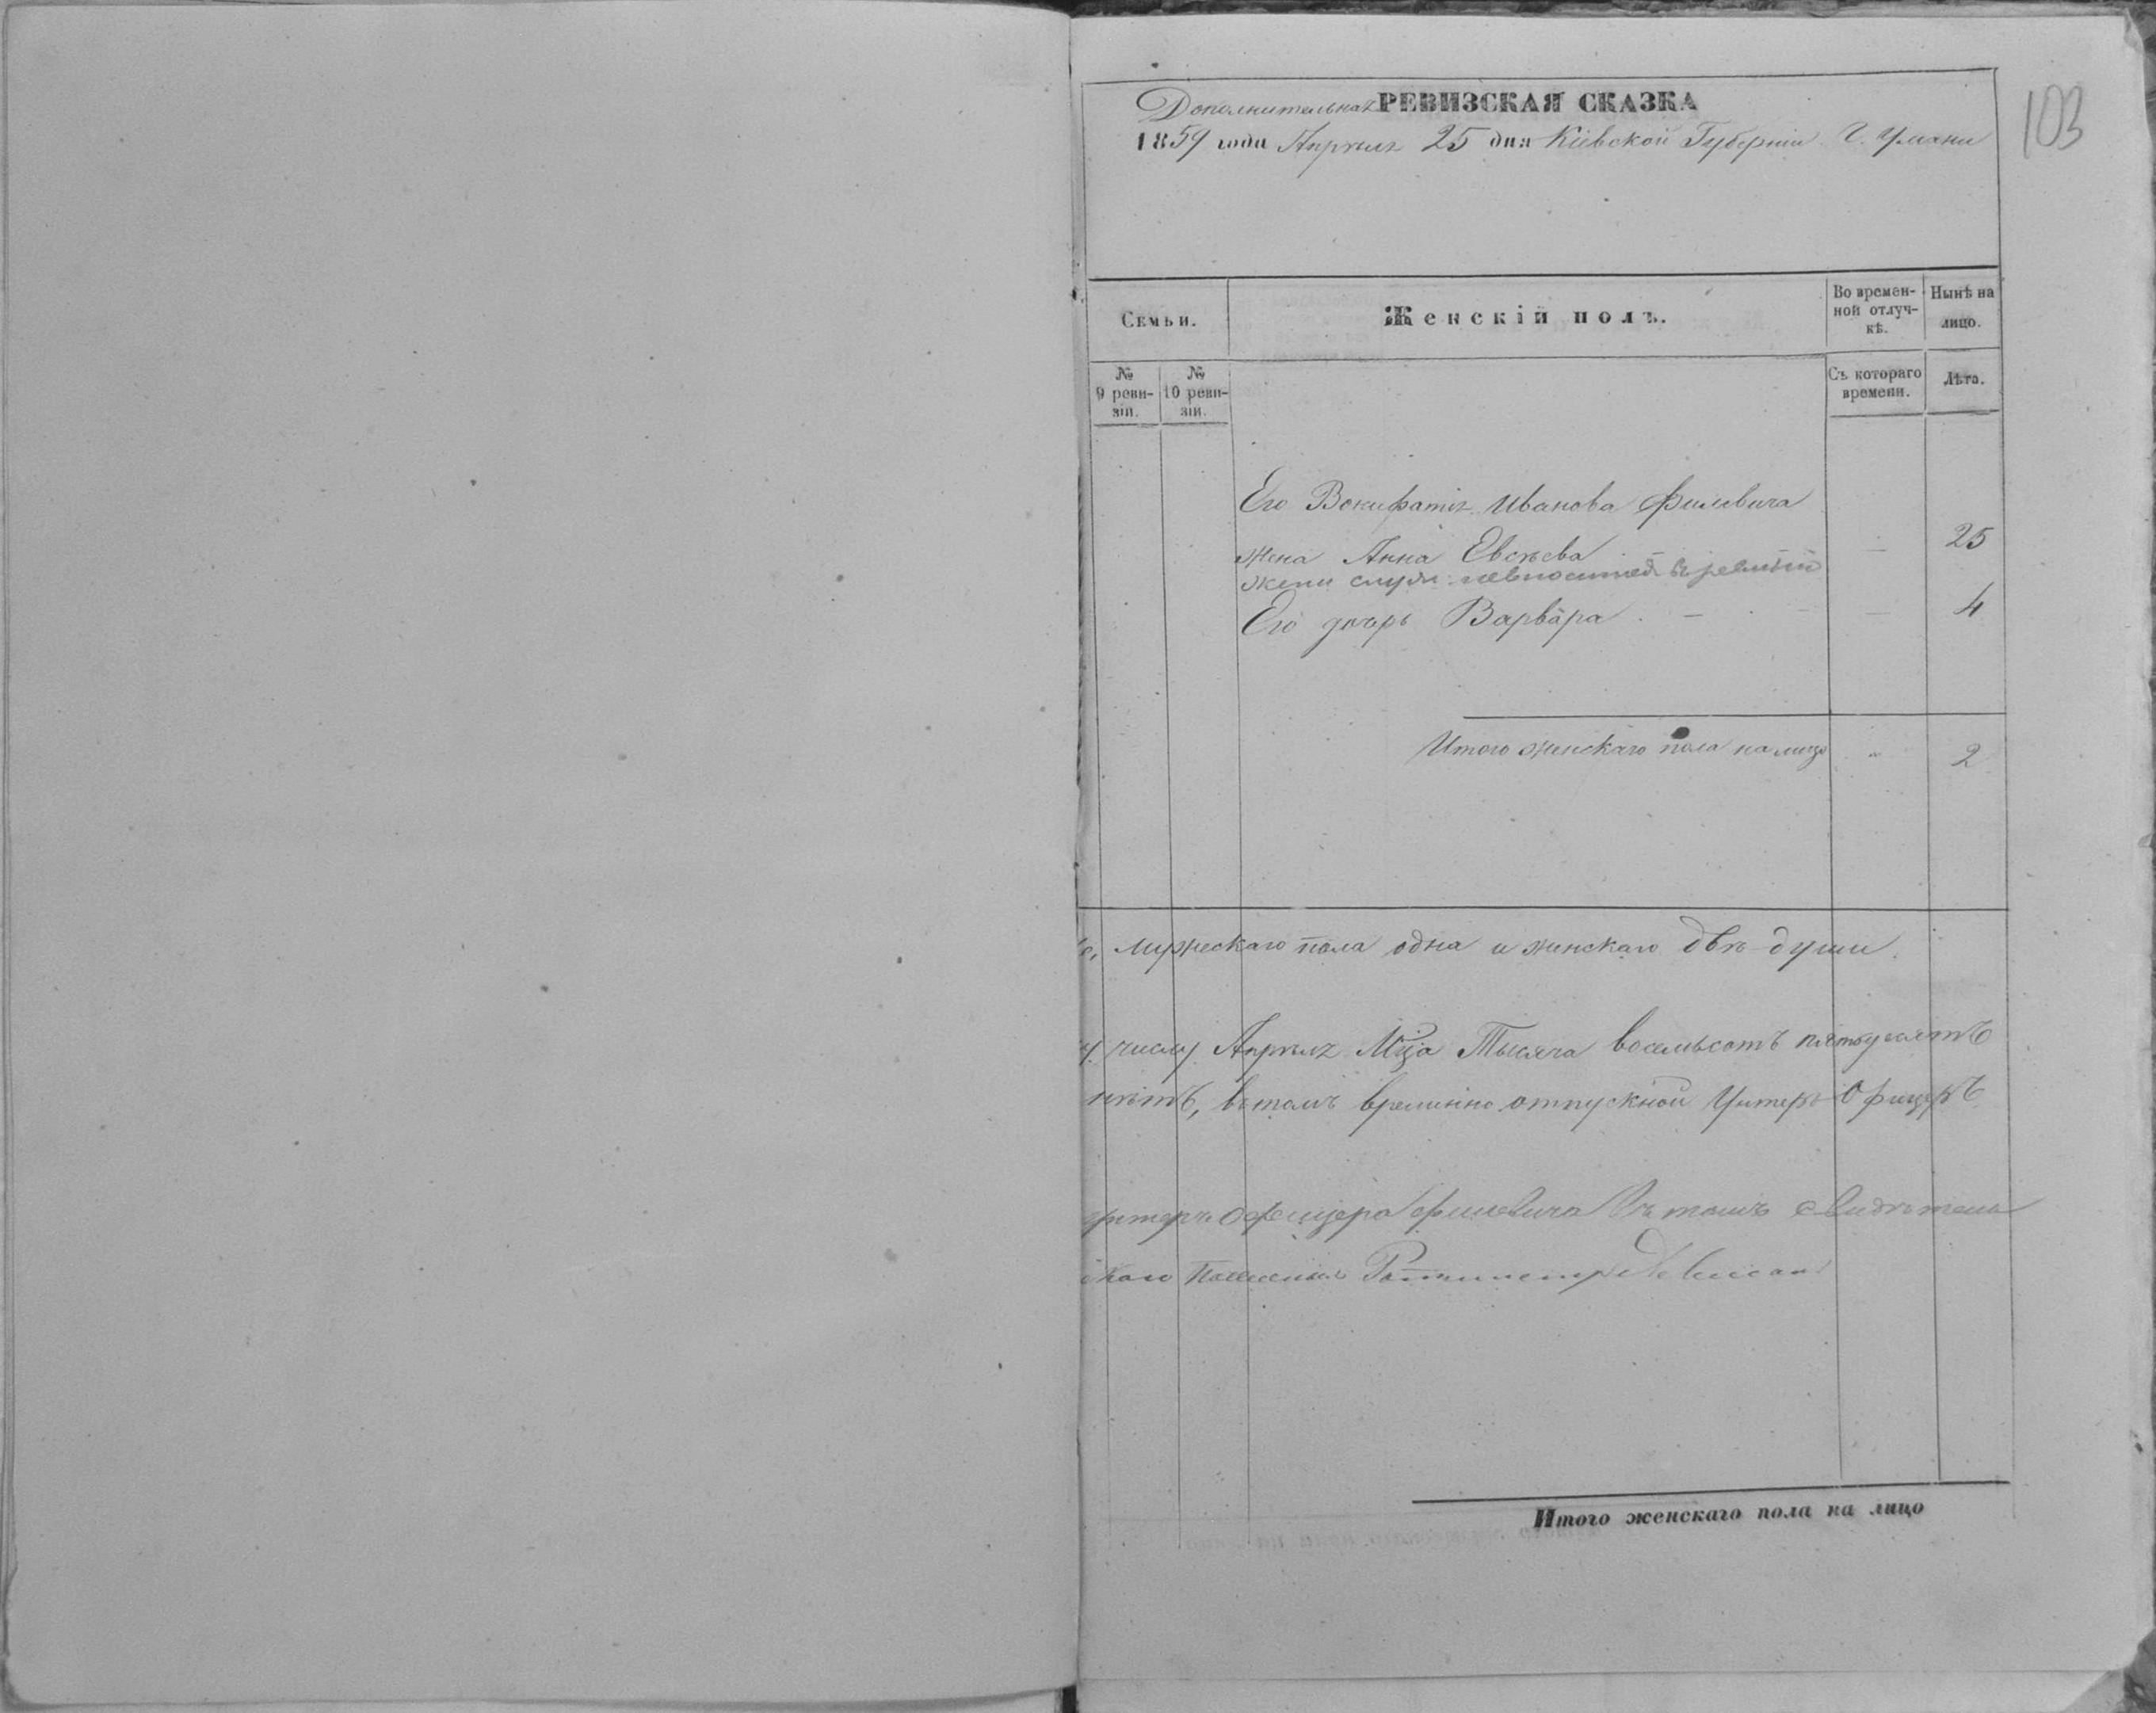 103
Дополнительная РЕВИЗСКАЯ СКАЗКА
1859 года Апрѣля 25 дня Кіевской Губерніи Г. Умани
Семьи.
Женскій полъ.
Во времен-
ной отлуч-
кѣ.
Нынѣ на
лицо.
№
9 реви-
зіи.
№
10 реви-
зіи.
Съ котораго
времени.
Лѣта.
Его Вонифатія Иванова Филевича
жена Анна Евсѣева — 25
жены
Его дочерь Варвара — — 4
Итого женскаго пола на лицо " 2
мужескаго пола одна и женскаго двѣ души.
числу Апрѣля Мца Тысяча восемьсотъ пятьдесятъ
въ томъ временно отпускной Унтеръ Офицеръ
Унтеръ Офицера Филевича Въ томъ свидѣтель
Ротмистръ
Итого женскаго пола на лицо